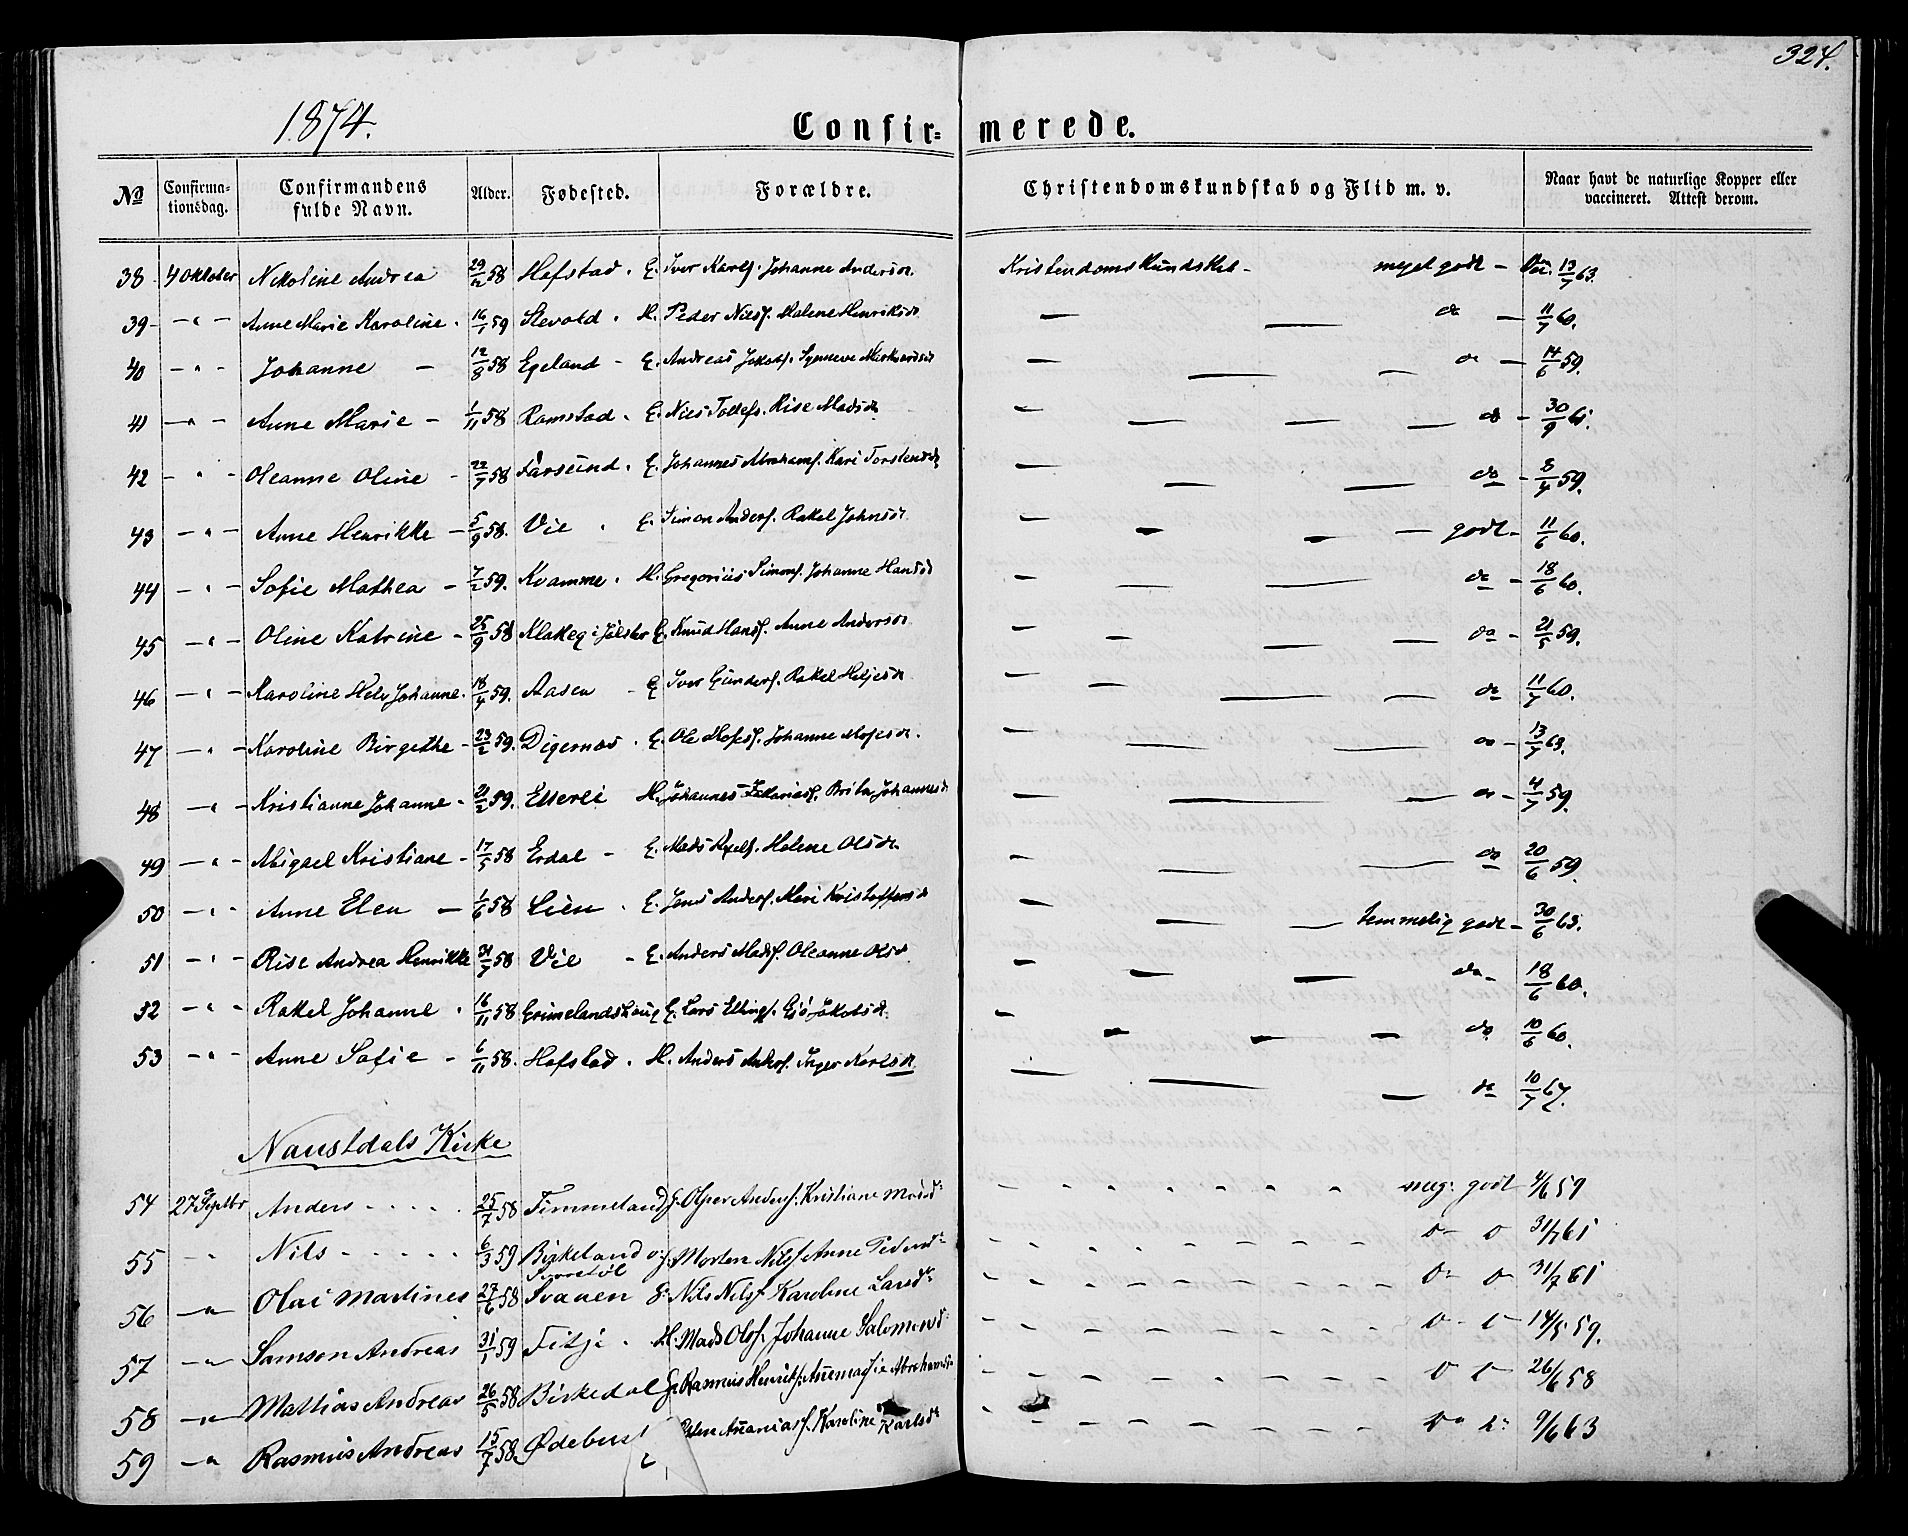 324.
1874.
Confir= merede.
No
Confirma-
tionsdag.
Confirmandens
fulde Navn.
Alder.
Fødested.
Forældre.
Christendomskundskab og Flid m. v.
Naar havt de naturlige Kopper eller
vaccineret. Attest derom.
38 4 Oktober Nikoline Andrea 29/12 58 Hafstad. E. Iver Karls. Johanne Andersd. Kristendomskundskab - meget godt - 13/7 63.
39 - " - Anne Marie Karoline. 16/1 59 H. Peder Nilss. Malene Henriksd. — do — 11/7 60.
40 - " - Johanne - 12/8 58 Egeland - E. Andreas Jakobs. Synneve — do — 14/6 59.
41 - " - Anne Marie - 1/11 58 Ramstad. E. Nils Tollefs. Rise Madsd. — do - 30/9 61.
42 - " - Oleanne Oline - 22/7 58 Farsund. E. Johannes Abrahams. Kari Torstensd. — do - 8/4 59.
43 - " - Anne Henrikke - 5/9 58. Vie. E. Simon Anders. Rakel Johnsd. — godt - 11/6 60.
44 - " - Sofie Mathea - 7/2 59. Kvamme. H. Gregorius Simons. Johanne Hansd. — do - 18/6 60.
45 - " - Oline Katrine - 25/9 58 Klakeg i Jølster E. Knud Hans. Anne Andersd. — do - 21/5 59.
46 - " - Karoline Johanne. 18/4 59. Aasen - E. Iver Gunders. Rakel Heljesd. — do 11/7 60.
47 - " - Karoline Birgithe - 23/2 59. Digernæs. E. Ole Moses. Johanne Mosesd. — do - 13/7 63.
48 - " - Kristianne Johanne - 21/2 59. H. Johannes Zakarias. Brita Johannesd. — do - 4/7 59.
49 - " - Abigael Kristiane - 17/5 58 Erdal - E. Mads Malene Olsd. — do 20/6 59.
50 - " - Anne Elen - 1/6 58 Lien. E. Jens Anders. Mari Kristoffersd. — temmelig godt - 30/6 63.
51 - " - Rise Andrea Henrikke 31/7 58 Vie - E. Anders Mads. Oleanne Olsd. — do - 18/6 60.
52 - " - Rakel Johanne. 16/11 58 Grimelandshaug E. Lars Ellings. Jakobsd. — do 10/6 60.
53 - " - Anne Sofie - 6/11 58. Hafstad. H. Anders Anders. Inger Karlsd. — do 10/7 67.
Naustdals Kirke
54 27 Septbr Anders - - - - 25/7 58 Timmeland E. Anders. Kristiane Madsd. meg: godt 4/6 59
55 - " Nils - - - - - 6/3 59 Birkeland Morten Nils. Anne Pedersd. 31/7 61
56 - " - Olai Martines 27/6 58 Svaaen E. Nils Nils. Karoline Larsd. 31/7 61
57 - " - Samson Andreas 31/1 59 Fitje. H. Mads Ols. Johanne Salomonsd. 14/5 59.
58 - " - Mathias Andreas 26/5 58 Birkedal E. Rasmus Henriks. Annemagie Abrahamsd. 26/6 58
59 - " Rasmus Andreas 15/7 58 Ødebust Ananias. Karoline Karlsd. 9/6 63